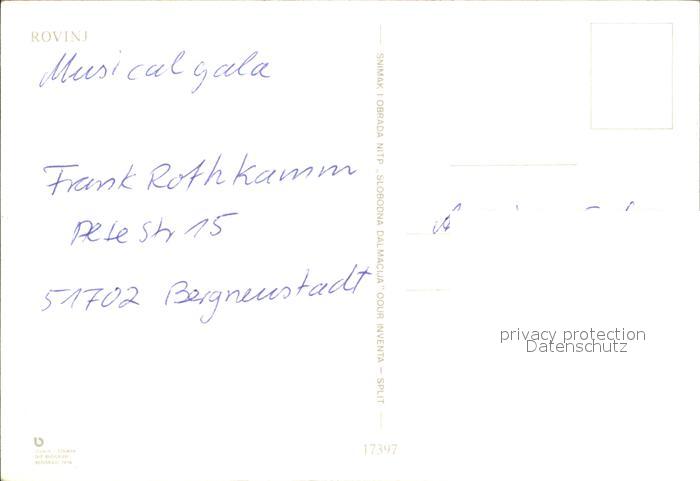 ROVINJ
Musicalgala
Frank Rothkamm
Str 15
51702 Bergneustadt
SNIMAK I OBRADA NITP „SLOBODNA DALMACIJA" OOUR INVENTA – SPLIT
privacy protection
Datenschutz
17397